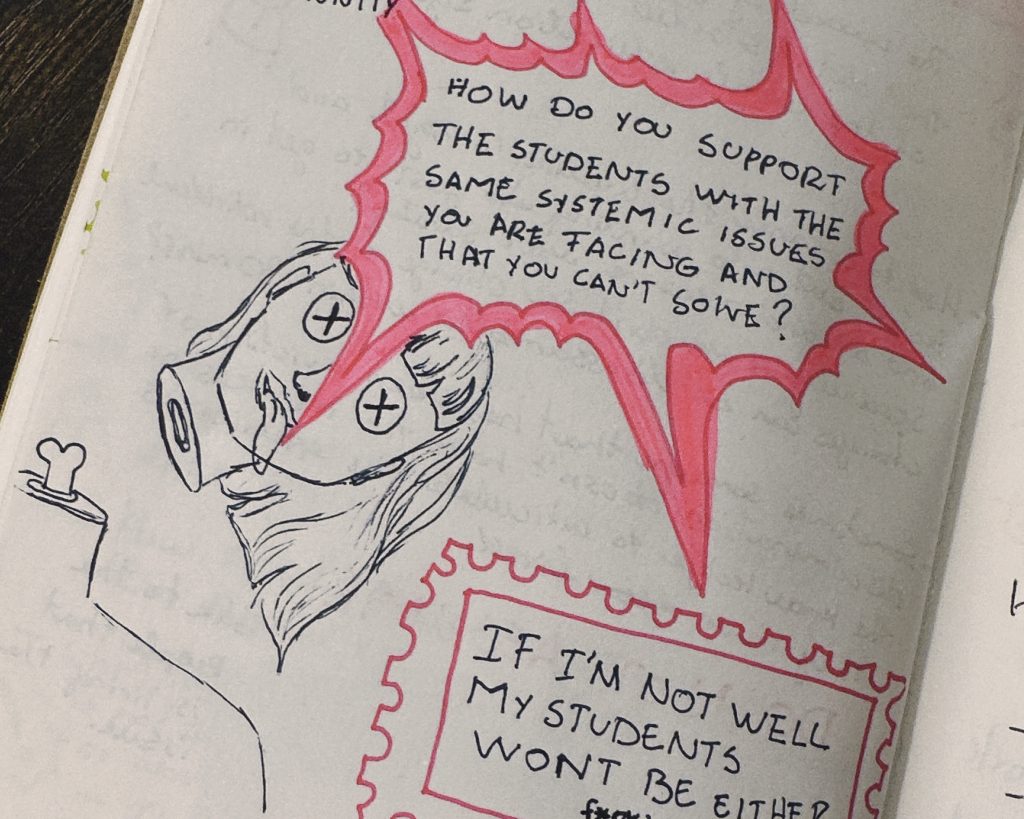 HOW DO YOU SUPPORT
THE STUDENTS WITH THE
SAME SYSTEMIC ISSUES
YOU ARE FACING AND
THAT YOU CAN'T SOLVE?
IF I'M NOT WELL
MY STUDENTS
WONT BE EITHER